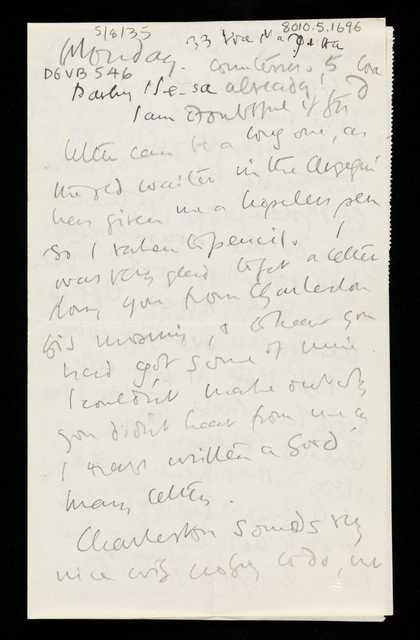 5/8/35 8010.5.1696
Monday. 33 Via Margutta
DGVB 546 Countess. 5
already!
I am doubtful if this
letter can be a long one, as
the red waiter in the
has given me a hopeless pen
so I taken to pencil. I
was very glad to get a letter
from you from Charleston
this morning, & to hear you
had got some of mine
I couldn't make out why
you didn't hear from me as
I have written a good
many letters.
Charleston sounds very
nice with nobody to do, no